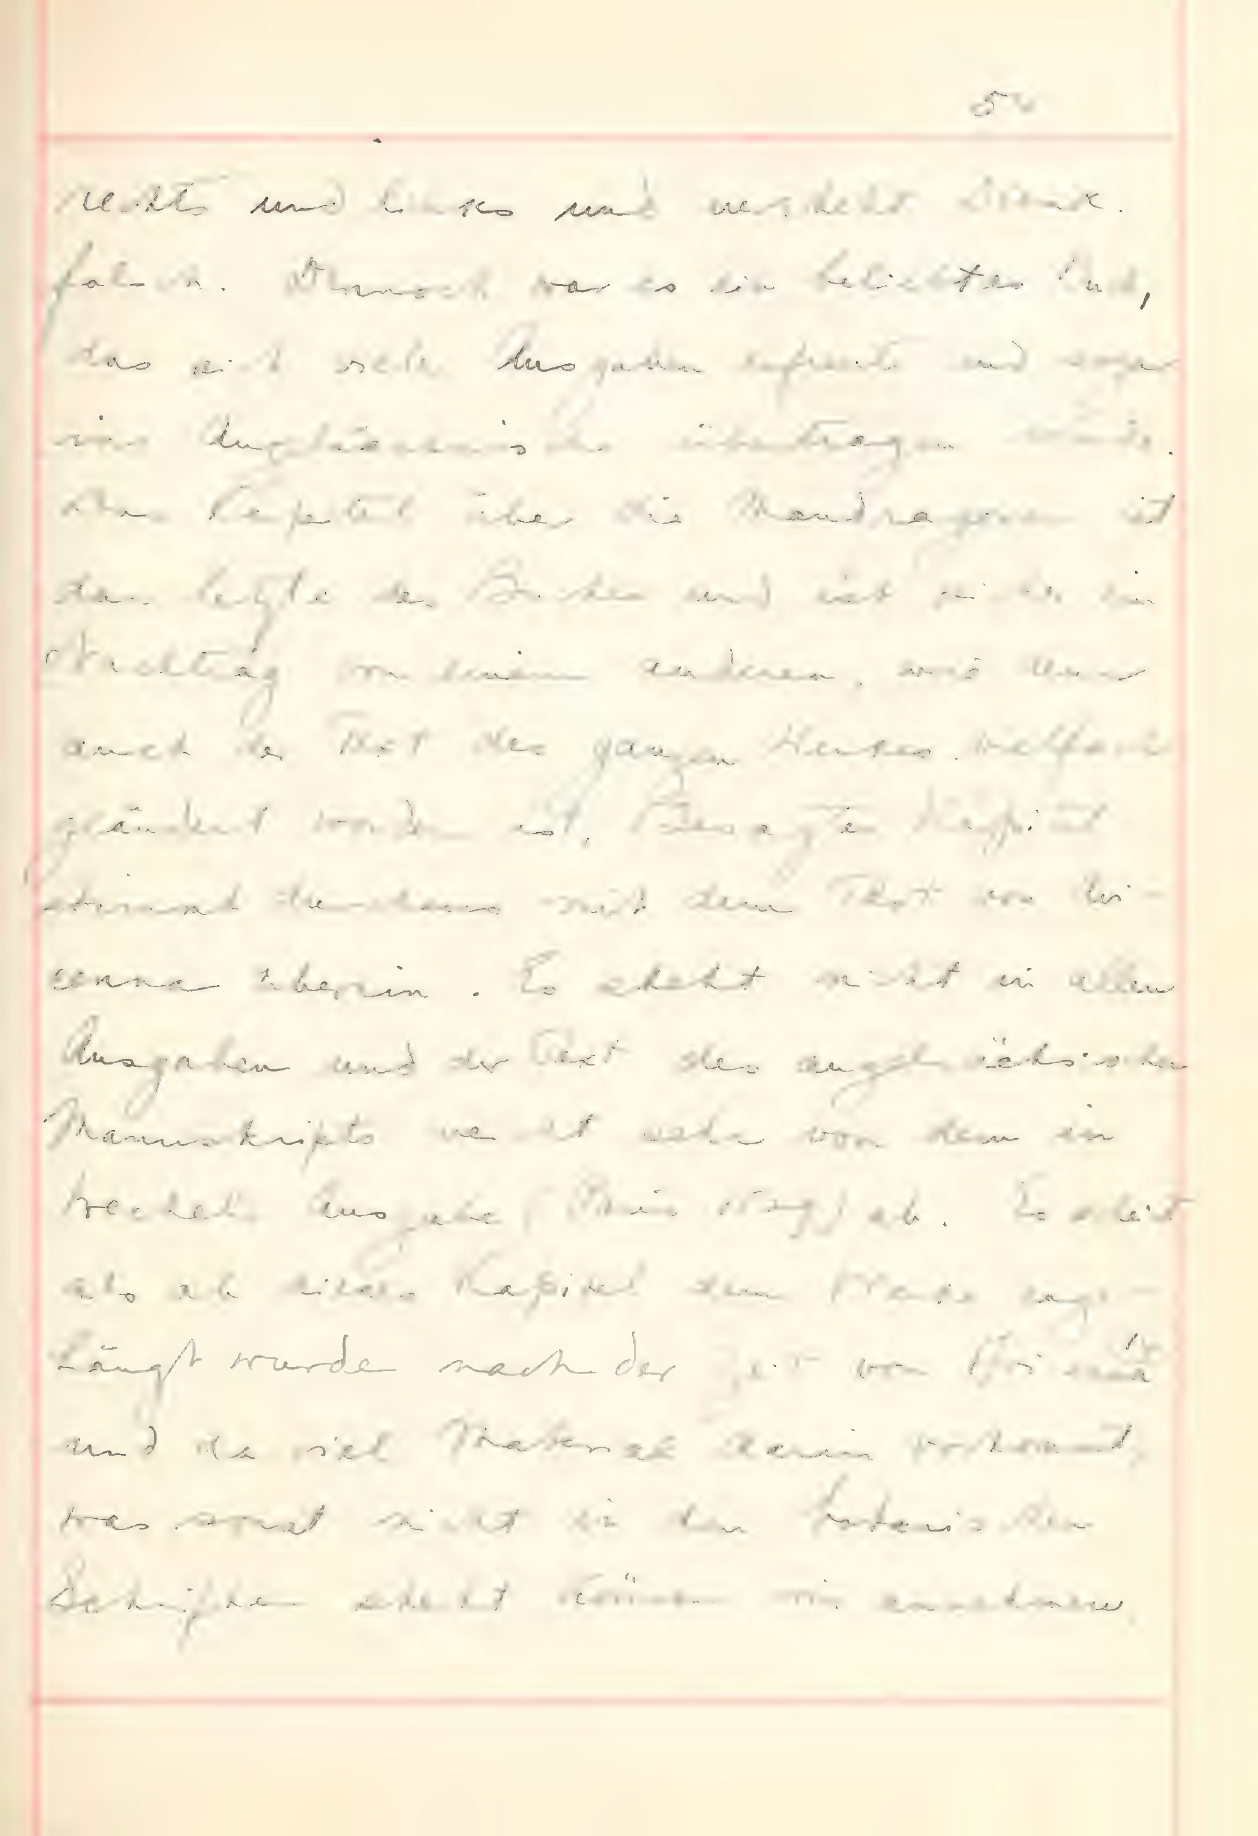 rechts und links und versteht
falsch. Dennoch war es ein beliebtes Buch,
das sich vieler Ausgaben erfreute und sogar
ins Angelsächsische übertragen wurde.
Das Kapitel über die Mandragora ist
das letzte des Buches und ist sicher ein
Nachtrag von einem anderen, wie denn
auch der Text des ganzen Werkes vielfach
geändert worden ist. Besagtes Kapitel
stimmt durchaus mit dem Text von Avi-
cenna überein. Es steht nicht in allen
Ausgaben und der Text des angelsächsischen
Manuskripts weicht sehr von dem in
Wechels Ausgabe (Paris) ab. Es scheint
als ob dieses Kapitel dem Werke ange-
hängt wurde nach der Zeit von
und da viel Material darin vorkommt,
was sonst nicht in den botanischen
Schriften steht können wir annehmen